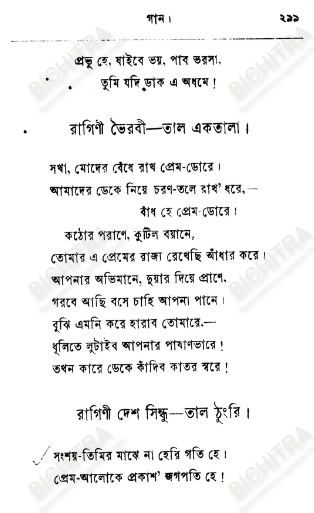 গান।
২৯৯
প্রভু হে, যাইবে ভয়, পাব ভরসা,
তুমি যদি ডাক এ অধমে!
রাগিণী ভৈরবী—তাল একতালা।
সখা, মোদের বেঁধে রাখ প্রেম-ডোরে।
আমাদের ডেকে নিয়ে চরণ-তলে রাখ' ধরে,—
বাঁধ হে প্রেম-ডোরে।
কঠোর পরাণে, কুটিল বয়ানে,
তোমার এ প্রেমের রাজ্য রেখেছি আঁধার করে।
আপনার অভিমানে, দুয়ার দিয়ে প্রাণে,
গরবে আছি বসে চাহি আপনা পানে।
বুঝি এমনি করে হারাব তোমারে,—
ধূলিতে লুটাইব আপনার পাষাণভারে!
তখন কারে ডেকে কাঁদিব কাতর স্বরে!
রাগিণী দেশ সিন্ধু—তাল ঠুংরি।
সংশয়-তিমির মাঝে না হেরি গতি হে।
প্রেম-আলোকে প্রকাশ' জগপতি হে!
BICHITRA